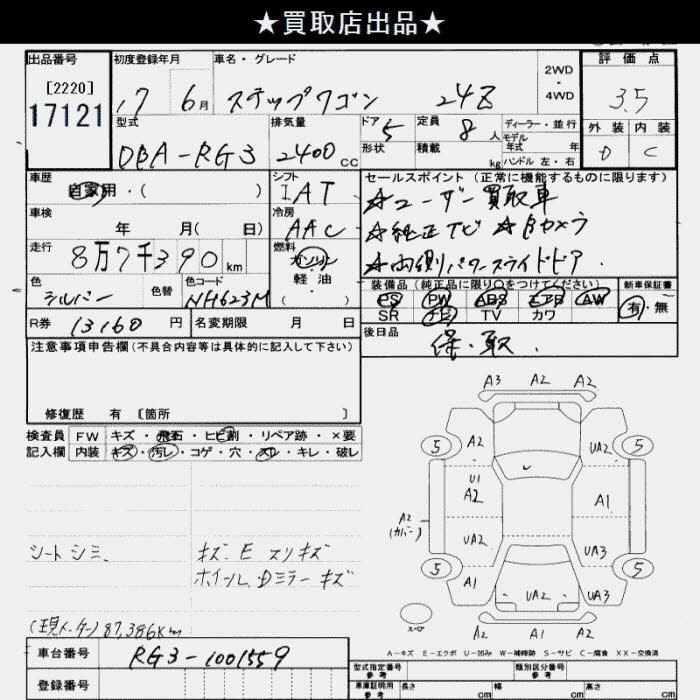 ★買取店出品★
出品番号 初度登録年月 車名・グレード 評価点
[2220] 17 6月 ステップワゴン 24Z 2WD・4WD 3.5
17121
型式 排気量 ドア 5 定員 8人 ディーラー・並行 外装 内装
DBA-RG3 2400cc 形状 積載 kg モデル年式 年 D C
ハンドル 左・右
車歴 自家用・( ) シフト IAT セールスポイント(正常に機能するものに限ります)
車検 年 月( 日) 冷房 AAC ☆ユーザー買取車
☆純正TV ☆Bカメラ
走行 8万7千390km 燃料 ガソリン・軽油・( ) ☆両側パワースライドドア
色 シルバー 色替 色コード NH623M 装備品(純正品に限り○をつけてください) 新車保証書
PS PW ABS エアB AW 有・無
SR ナビ TV カワ
R券 13160円 名変期限 月 日 後日品 保・取
注意事項申告欄(不具合内容等は具体的に記入して下さい)
修復歴 有 [箇所 ]
検査員 FW キズ・飛石・ヒビ割・リペア跡・×要
記入欄 内装 キズ・汚レ・コゲ・穴・スレ・キレ・破レ
A3 A2 A2
5 A2 UA2 5
U1
A2 A1
A2(カバー)
UA2 UA3
5 A1 UA2 UA3 5
スペア A2 A1 A2
シートシミ、 キズ E スリキズ
ホイール、Dミラーキズ
(現メーター)87,386Km
A-キズ E-エクボ U-凹み W-補修跡 S-サビ C-腐食 XX-交換済
車台番号 RG3-1001559
登録番号
型式指定番号 参考 類別区分番号 参考
車庫証明用 参考 長さ cm 幅 cm 高さ cm